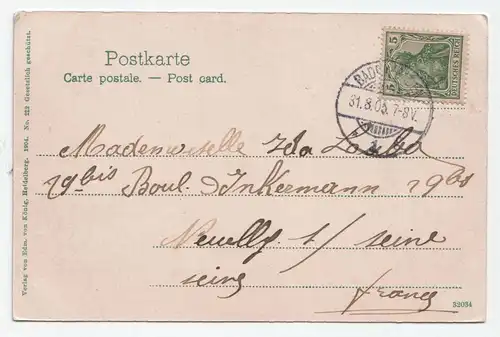 Postkarte
Carte postale. — Post card.
5 5
DEUTSCHES REICH
BADEN
31.8.05.7-8V.
Mademoiselle Ida
29 bis Boul. Inkermann 29 bis
Neuilly s/ seine
seine
france
32034
Verlag von Edm. von König, Heidelberg. 1904. No. 323 Gesetzlich geschützt.